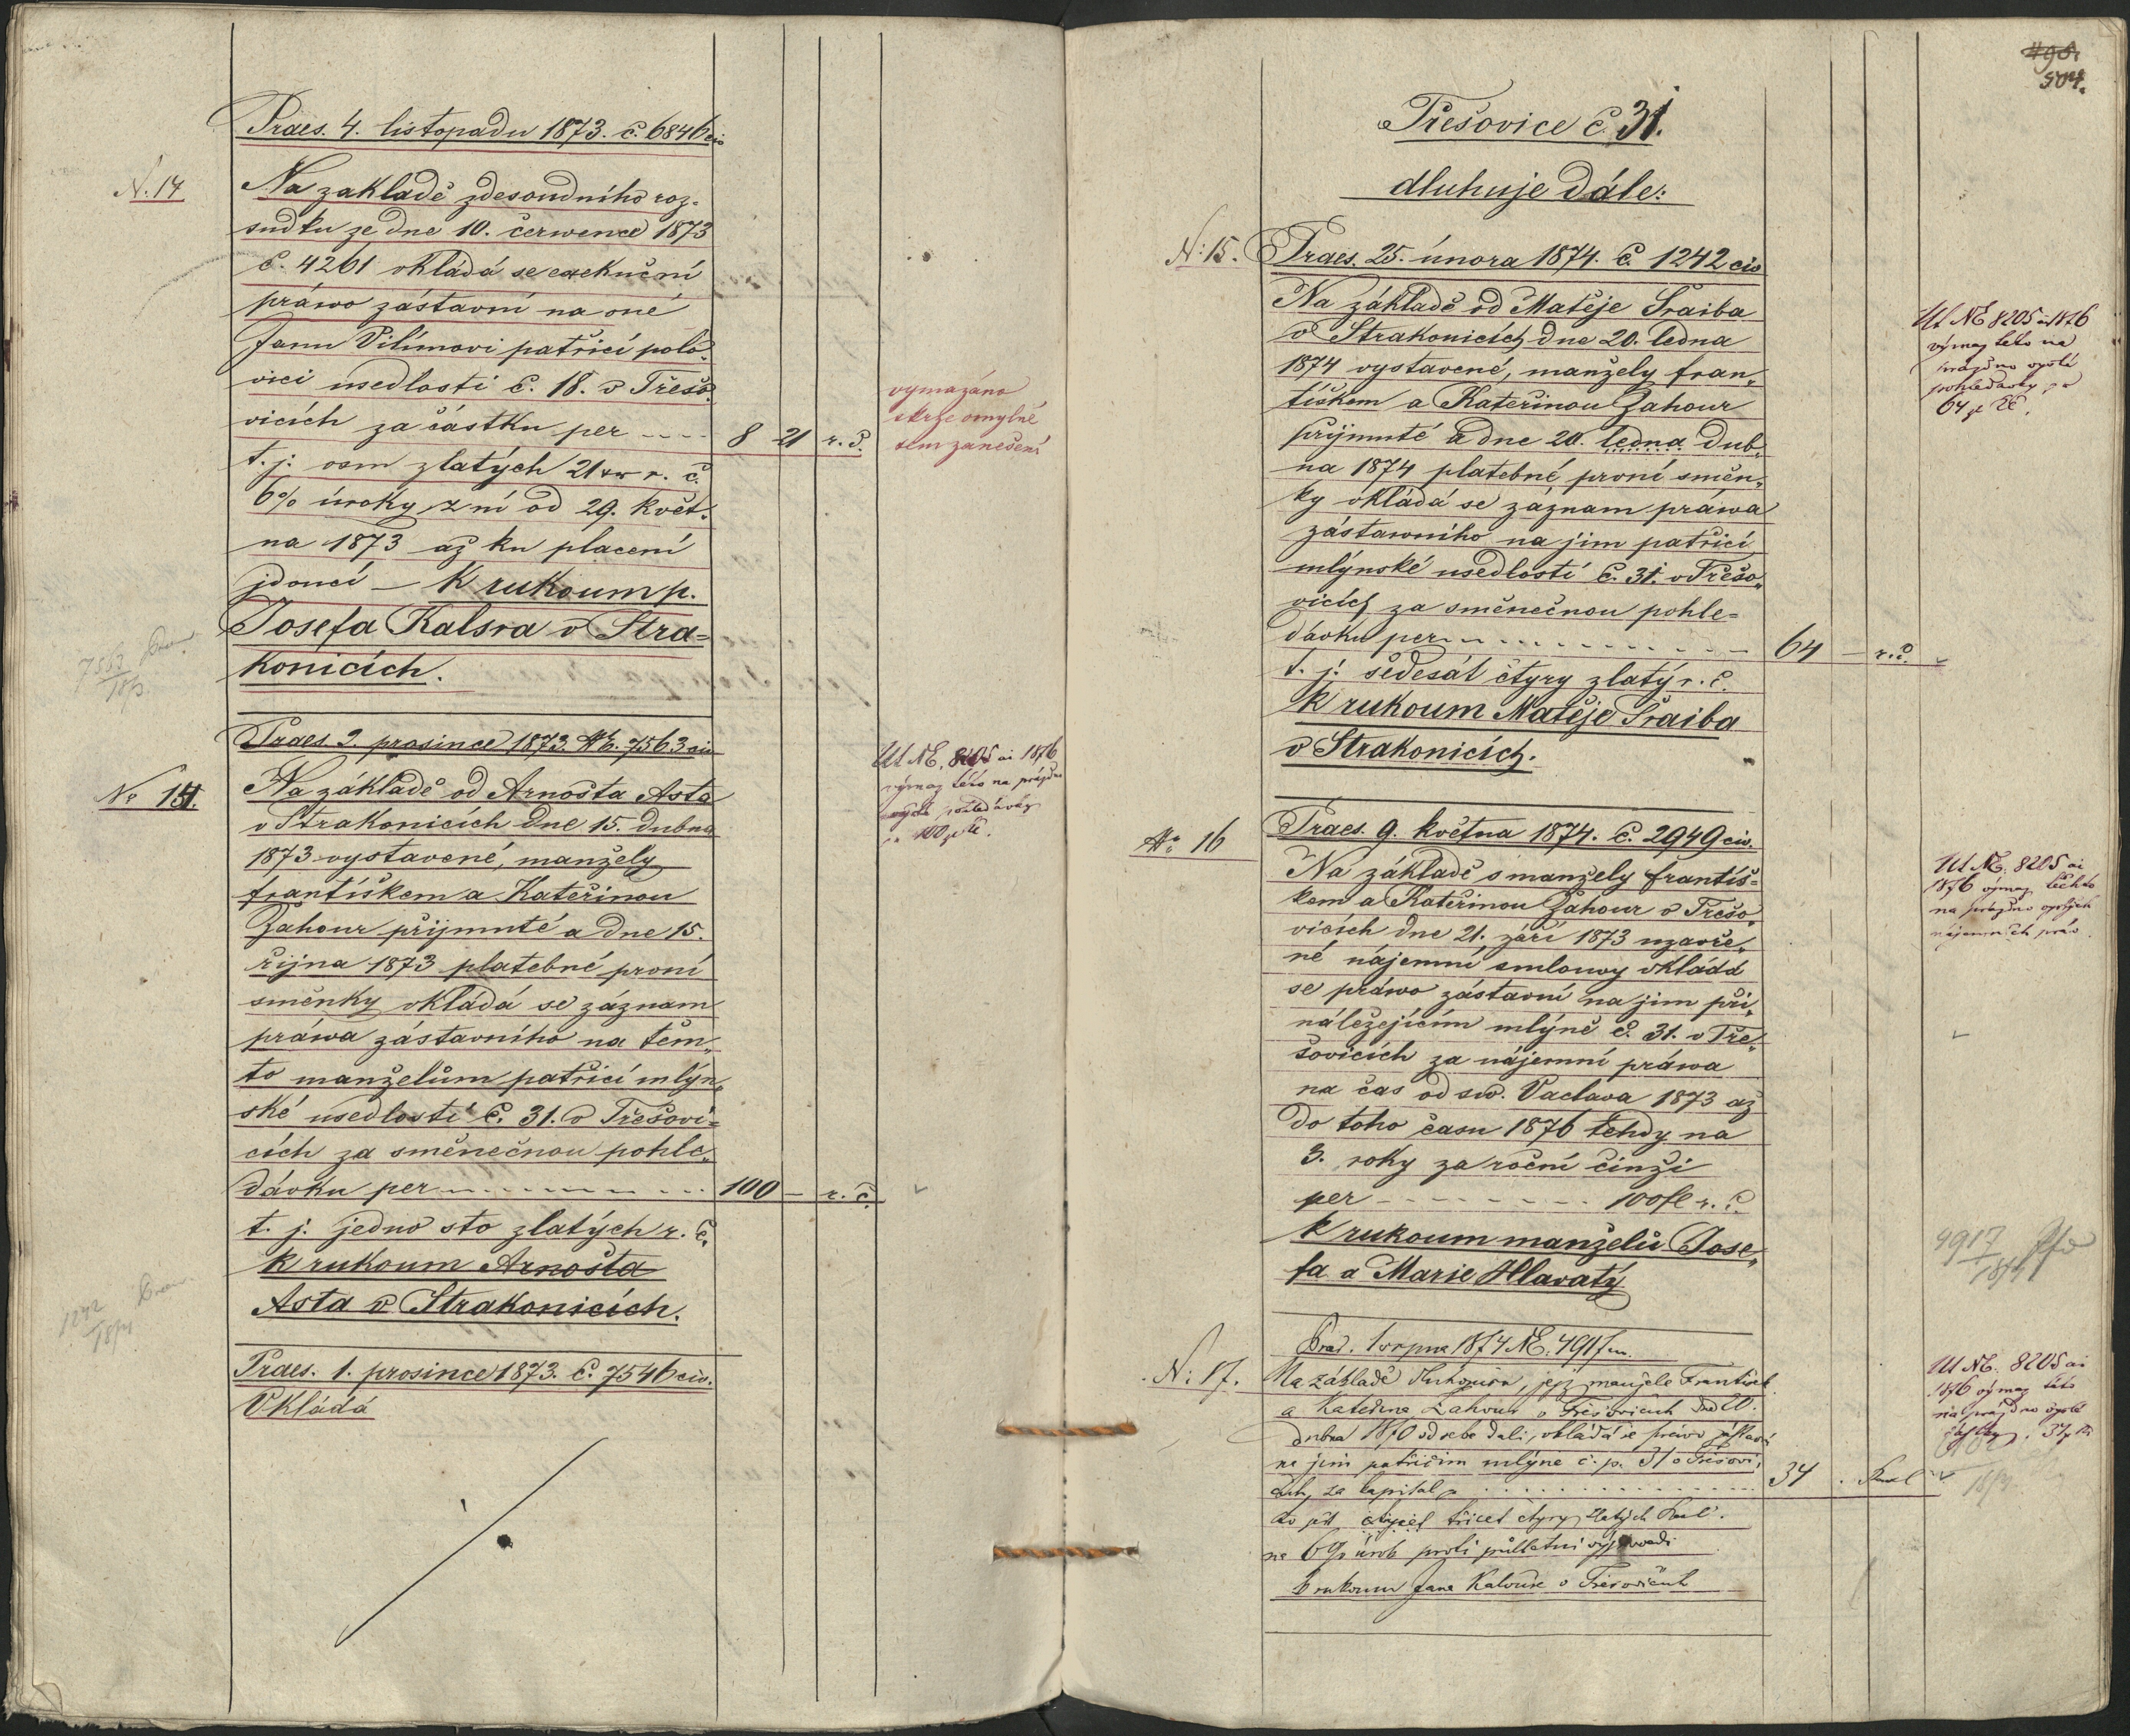 Praes. 4. listopadu 1873. č. 6846 civ
N. 14
Na zakladě zdesoudního roz-
sudku ze dne 10. července 1873
č. 4261 vkládá se exekuční
práwo zástavní na oné
Janu Vilímovi patřící polo-
vici usedlosti č. 18. v Třešo-
vicích za částku per ----
8 21 r. č.
t. j. osm zlatých 21 xr r. č.
6% úroky z ní od 29. květ-
na 1873 až ku placení
jdoucí – K rukoum p.
Josefa Kalsra v Stra-
konicích.
vymazáno
skrze omylné
sem zanešení
7563
Praes. 2. prosince 1873. č. 7563 civ
No 14.
Na základě od Arnošta Asta
v Strakonicích dne 15. dubna
1873 vystavené, manžely
františkem a Kateřinou
Zahour přijmuté a dne 15.
října 1873 platebné první
směnky vkládá se záznam
práwa zástavního na těm„
to manželům patřící mlýn„
ské usedlosti č. 31. v Třešovi=
cích za směnečnou pohle„
dávku per
100 – r. č.
t. j. jedno sto zlatých r. č.
K rukoum Arnošta
Asta v Strakonicích.
Ut NE. 8205 ai 1876
výmaz této na prázdno
vyšlé pohledávky
100 zl rč.
1242
1874
Praes. 1. prosince 1873. č. 7546 civ.
Vkládá
498.
504.
Třešovice č. 31.
dluhuje dále:
N: 15.
Praes. 25. února 1874. č. 1242 civ
Na základě od Matěje Šraiba
v Strakonicích dne 20. ledna
1874 vystavené, manžely fran„
tiškem a Kateřinou Zahour
přijmuté a dne 20. ledna dub„
na 1874 platebné první směn„
ky vkládá se záznam práwa
zástawního na jim patřící
mlýnské usedlosti č. 31. v Třešo„
vicích za směnečnou pohle=
dávku per
64 – r. č.
t. j. šedesát čtyry zlatý r. č.
K rukoum Matěje Šraiba
v Strakonicích.
Ut NE 8205 ai 1876
výmaz této na
prázdno vyšlé
pohledávky
64 zl rč.
No 16
Praes. 9. května 1874. č. 2949 civ.
Na základě s manžely františ=
kem a Kateřinou Zahour v Třešo„
vicích dne 21. září 1873 uzavře„
né nájemní smlouvy vkládá
se práwo zástavní na jim při„
náležejícím mlýně č. 31. v Tře„
šovicích za nájemní práwa
na čas od sw. Vaclava 1873 až
do toho času 1876 tehdy na
3. roky za roční činži
per - - - - - - - 100 fl r. č.
K rukoum manželů Jose„
fa a Marie Hlavatý
Ut NE. 8205 ai
1876 výmaz těchto
na prázdno vyšlých
nájemních práv.
4917
N: 17.
Praes. 1 srpna 1874 NE. 4917 civ.
Na základě dlužopisu, jejž manžele František
a Kateřina Zahour v Třešovicích dne 20.
dubna 1870 od sebe dali, vkládá se právo zástavní
na jim patřícím mlýne č. p. 31 v Třešovi„
cích, za kapital
34
třicet čtyry zlatých
na 6% úrok proti půlletní výpovědi
k rukoum Jana Kalouse v Třešovicích
Ut NE. 8205 ai
1876 výmaz této
na prázdno vyšlé